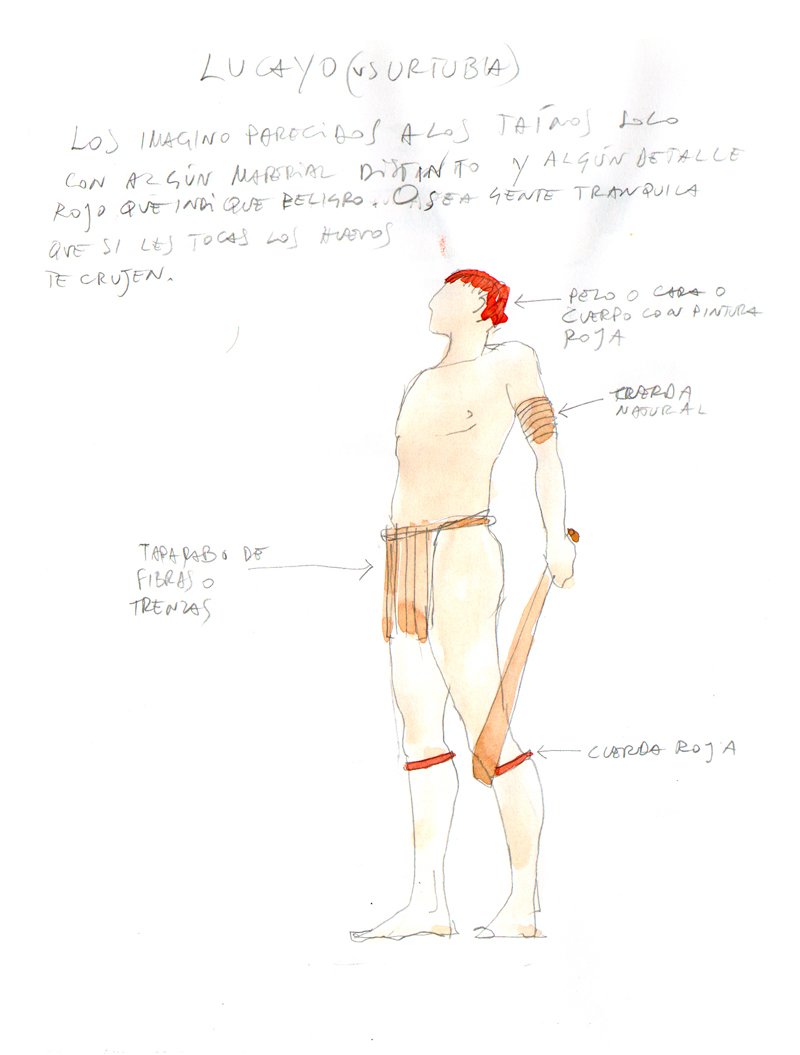 LUCAYO (vs URTUBIA)
LOS IMAGINO PARECIDOS A LOS TAÍNOS SOLO
CON ALGÚN MATERIAL DISTINTO Y ALGÚN DETALLE
ROJO QUE INDIQUE PELIGRO. O SEA GENTE TRANQUILA
QUE SI LES TOCAS LOS HUEVOS
TE CRUJEN.
PELO O CARA O
CUERPO CON PINTURA
ROJA
CUERDA
NATURAL
TAPARABO DE
FIBRAS O
TRENZAS
CUERDA ROJA